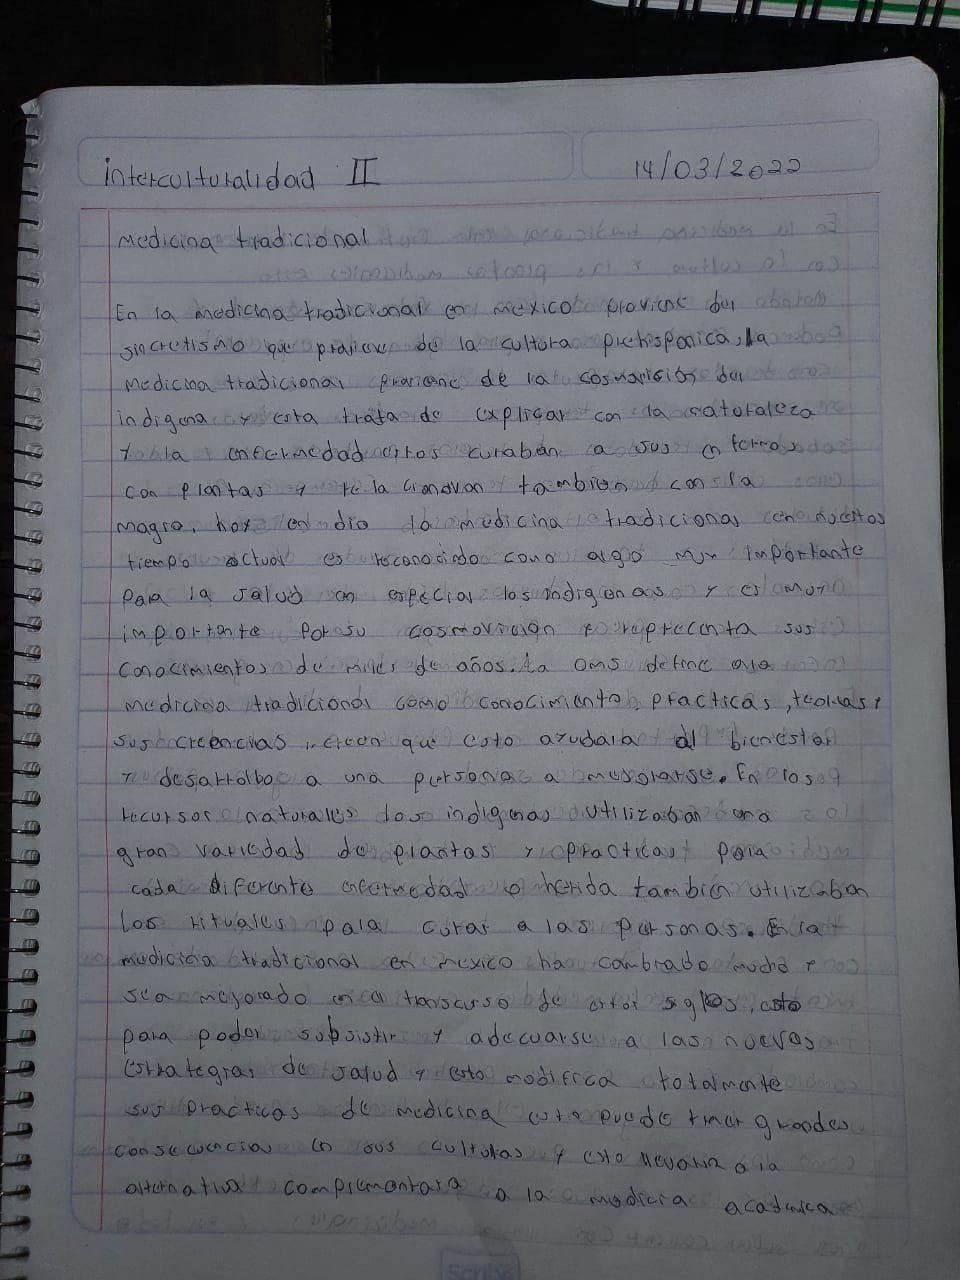 interculturalidad II
14/03/2022
medicina tradicional
En la medicina tradicional en mexico proviene del
sincretismo que de la cultura prehispanica, la
medicina tradicional proviene de la cosmovisión del
indigena y esta trata de explicar con la naturaleza
y la enfermedad estos curaban a sus enfermos
con plantas y también con la
magia, hoy en dia la medicina tradicional en nuestos
tiempo actual es reconocido como algo muy importante
para la salud en especial los indigenas y es muy
importante por su cosmovicion y reprecenta sus
conocimientos de miles de años. La oms define ala
medicina tradicional como conocimiento, practicas, teorias y
sus creencias, creen que esto ayudara al bienestar
y desarrollo a una persona a mejorarse. En los
recursos naturales los indigenas utilizaban una
gran variedad de plantas y practicas para
cada diferente enfermedad o herida tambien utilizaban
los rituales para curar a las personas. En la
medicina tradicional en mexico ha cambiado mucho y
sea mejorado en el transcurso de estos siglos, esto
para poder subsistir y adecuarse a las nuevas
estrategias de salud y esto modifica totalmente
sus practicas de medicina esto puede traer grandes
consecuencias en sus culturas y esto llevaria a la
alternativa complementaria a la academica
Scribe